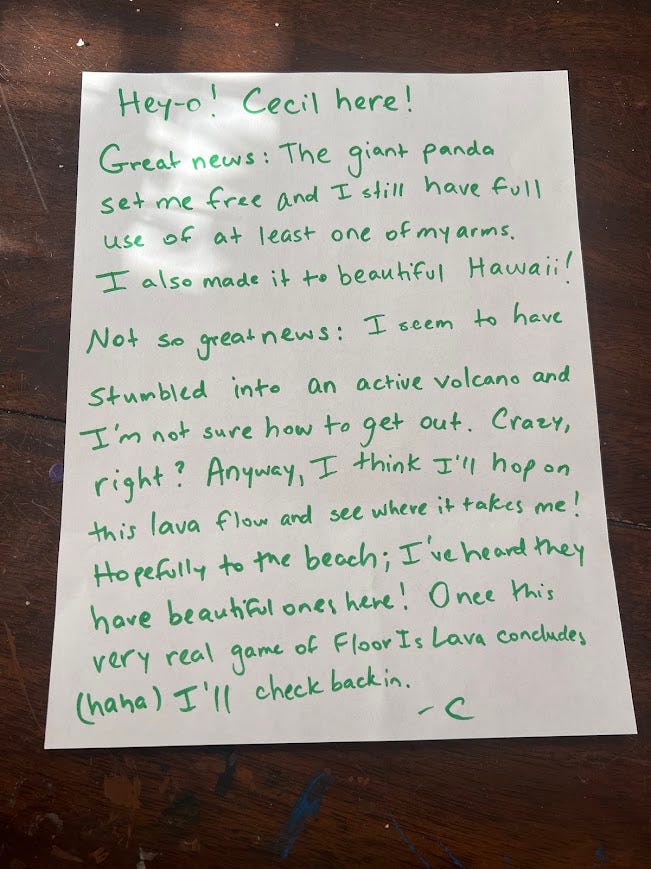 Hey-o! Cecil here!
Great news: The giant panda
set me free and I still have full
use of at least one of my arms.
I also made it to beautiful Hawaii!
Not so great news: I seem to have
stumbled into an active volcano and
I'm not sure how to get out. Crazy,
right? Anyway, I think I'll hop on
this lava flow and see where it takes me!
Hopefully to the beach; I've heard they
have beautiful ones here! Once this
very real game of Floor Is Lava concludes
(haha) I'll check back in.
- C